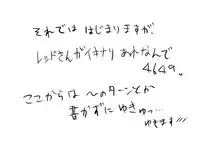 それでは はじまりますが、
レッドさんがイキナリ あれなんで
4649。
ここからは 〜のターンとか
書かずに ゆきゅっ…
ゆきます!!!